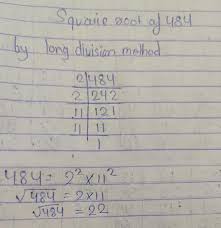 Square root of 484
by long division method
2|484
2|242
11|121
11|11
1
484 = 2²×11²
√484 = 2×11
√484 = 22